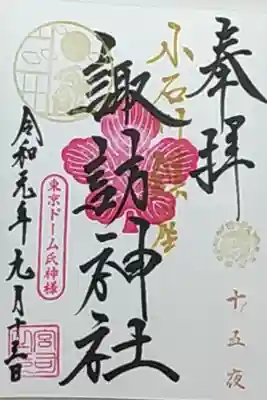 奉拝
十五夜
小石川鎮座
諏訪神社
東京ドーム氏神様
令和元年九月十三日